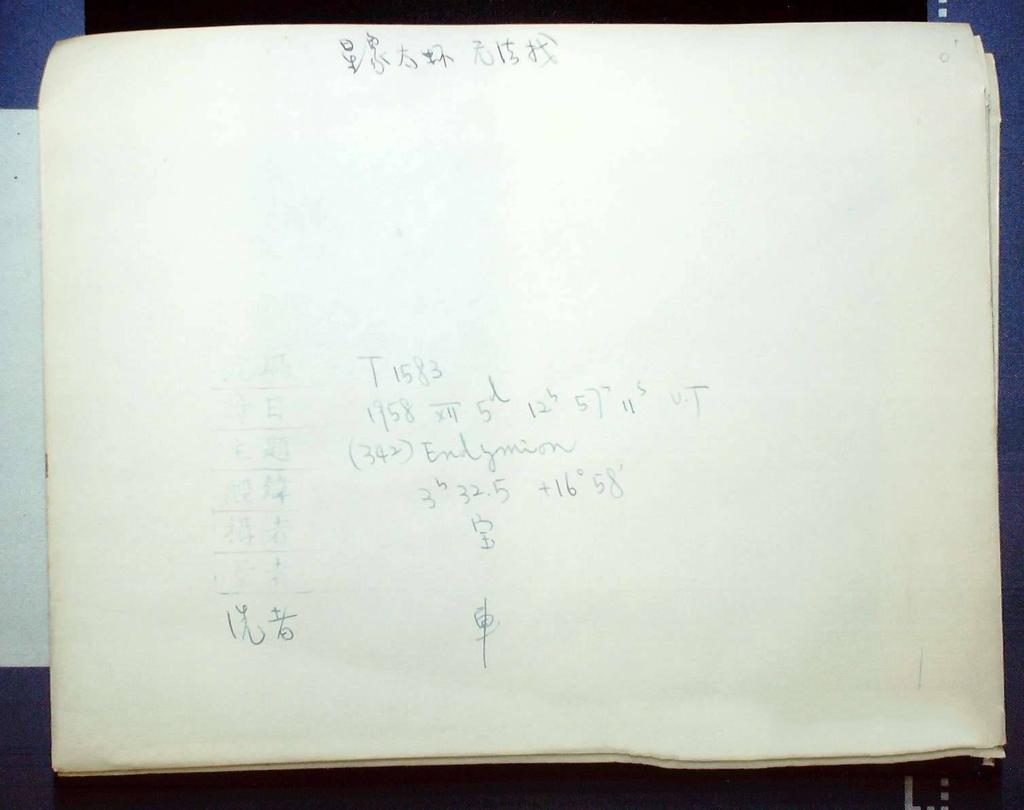 星象太坏 无法找
号码 T 1583
今日 1958 XII 5ᵈ 12ʰ 57ᵐ 11ˢ U.T
主题 (342) Endymion
3ʰ 32.5 +16° 58'
者 宝
洗者 申